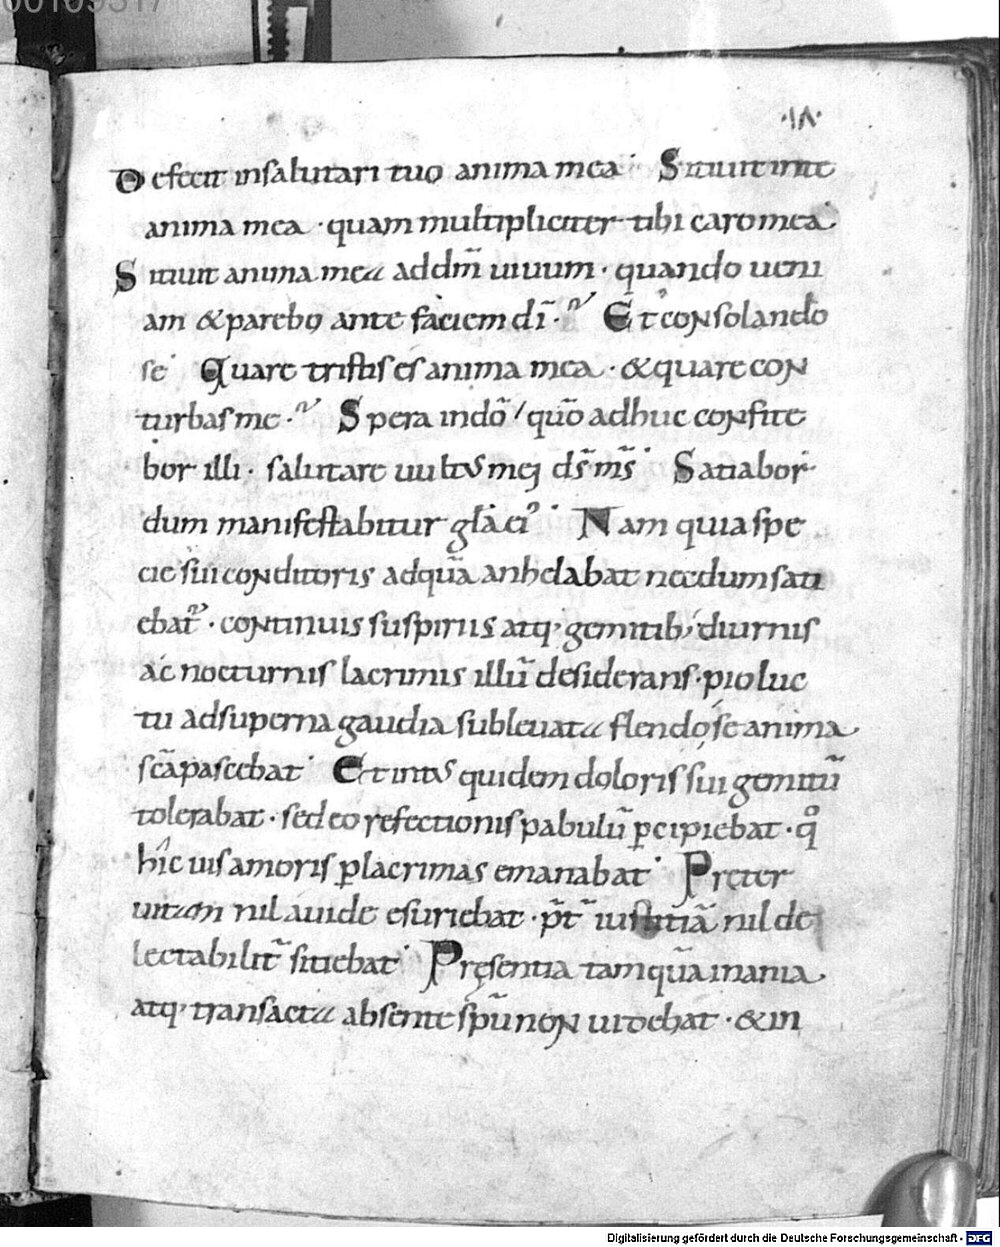 00109517
·18·
Defecit insalutari tuo anima mea· Sitiuit inte
anima mea · quam multipliciter tibi caro mea·
Sitiuit anima mea addm̄ uiuum · quando ueni
am & parebo ante faciem dī · Et consolando
se· Quare tristis es anima mea · & quare con
turbas me · Spera indō / quō adhuc confite
bor illi · salutare uultus mei ds̄ ms̄· Satiabor
dum manifestabitur glā ei᾽· Nam quia spe
cie sui conditoris adquā anhelabat necdum sati
ebat᾽ · continuis suspiriis atq; gemitib; diurnis
ac nocturnis lacrimis illū desiderans · pio luc
tu adsuperna gaudia subleuata flendo se anima
sc̄a pascebat· Et intus quidem doloris sui gemitū
tolerabat · sed eo refectionis pabulū p̄cipiebat · qͦ
hic uis amoris p̱ lacrimas emanabat· Pręter
nil auide esuriebat · p̄t iustitiā nil de
lectabilit̄ sitiebat· Pręsentia tamquā inania·
atq; transacta absente spū non uidebat · & in
Digitalisierung gefördert durch die Deutsche Forschungsgemeinschaft - DFG